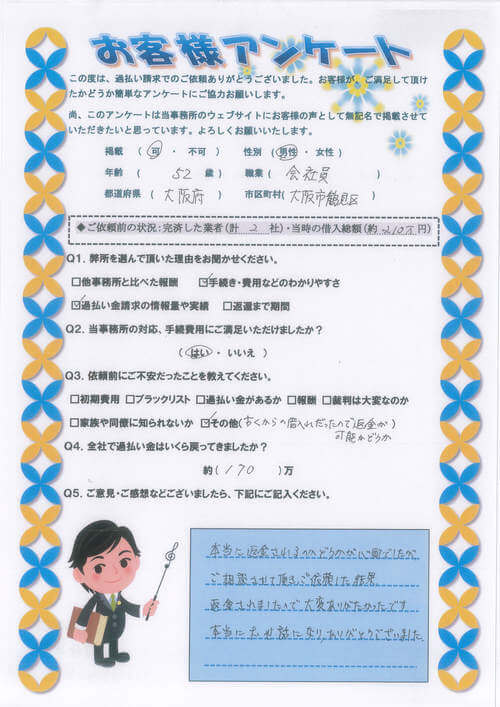 お客様アンケート
この度は、過払い請求でのご依頼ありがとうございました。お客様が、ご満足して頂け
たかどうか簡単なアンケートにご協力お願いします。
尚、このアンケートは当事務所のウェブサイトにお客様の声として無記名で掲載させて
いただきたいと思っています。よろしくお願いいたします。
掲載 ( 可 ・ 不可 ) 性別 ( 男性 ・ 女性 )
年齢 ( 52 歳 ) 職業 ( 会社員 )
都道府県 ( 大阪府 ) 市区町村( 大阪市鶴見区 )
◆ご依頼前の状況：完済した業者(計 2 社)・当時の借入総額(約 210万円)
Q1. 弊所を選んで頂いた理由をお聞かせください。
□他事務所と比べた報酬 ☑手続き・費用などのわかりやすさ
☑過払い金請求の情報量や実績 □返還まで期間
Q2. 当事務所の対応、手続費用にご満足いただけましたか？
( はい ・ いいえ )
Q3. 依頼前にご不安だったことを教えてください。
□初期費用 □ブラックリスト □過払い金があるか □報酬 □裁判は大変なのか
□家族や同僚に知られないか ☑その他(古くからの借入れだったので返金が
可能かどうか)
Q4. 全社で過払い金はいくら戻ってきましたか？
約( 170 )万
Q5. ご意見・ご感想などございましたら、下記にご記入ください。
本当に返金されるのかどうかが心配でしたが
ご相談させて頂き、ご依頼した結果
返金されましたので大変ありがたかったです
本当にお世話になり、ありがとうございました。